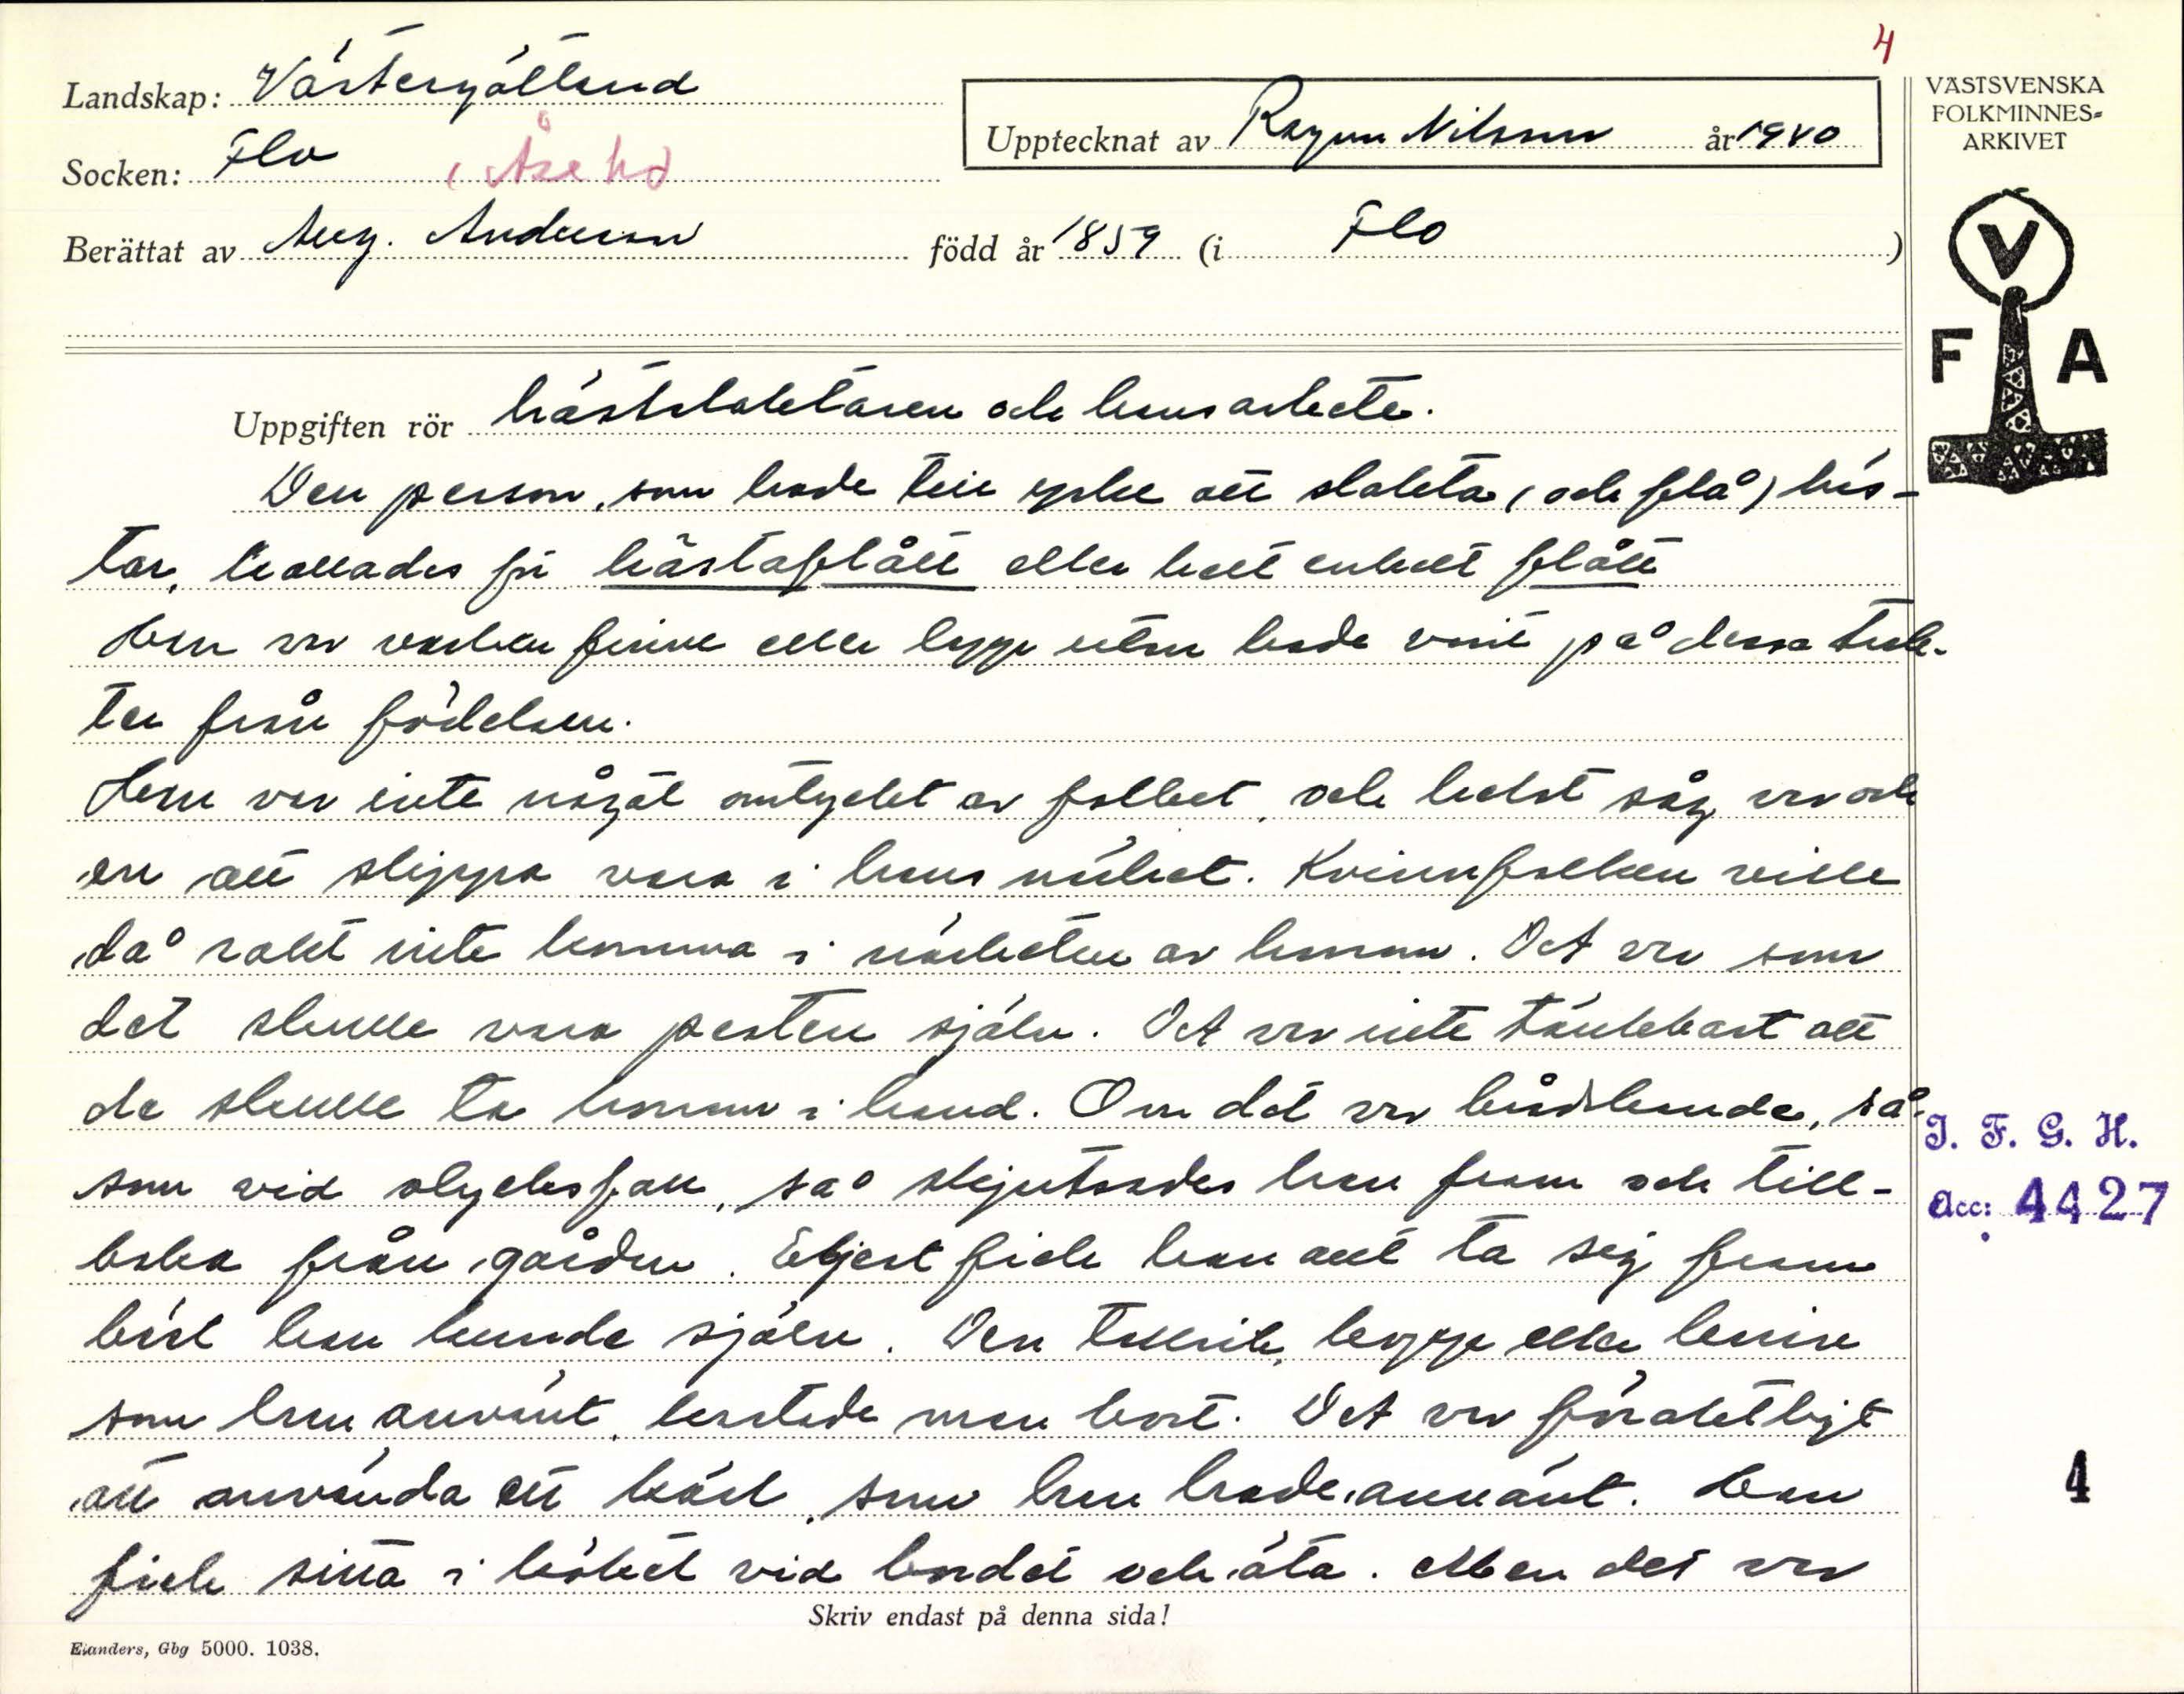 4
Landskap: Västergötland
Upptecknat av Ragnar Nilsson år 1940
VÄSTSVENSKA
FOLKMINNES-
ARKIVET
Socken: Flo i Åse hd
Berättat av Aug. Andersson född år 1859 (i Flo)
V
F A
Uppgiften rör hästslaktaren och hans arbete.
Den person, som hade till yrke att slakta (och flå) häs-
tar, kallades för hästaflått eller helt enkelt flått
Han var varken finne eller lapp utan hade varit på dessa trak-
ter från födelsen.
Han var inte något omtyckt av folket, och helst såg var och
en att slippa vara i hans närhet. Kvinnfolken ville
då rakt inte komma i närheten av honom. Det var som
det skulle vara pesten själv. Det var inte tänkbart att
de skulle ta honom i hand. Om det var brådskande, så-
som vid olycksfall, så skjutsades han fram och till-
baka från gården. Eljest fick han allt ta sig fram
bäst han kunde själv. Den tallrik, kopp eller kniv
som han använt, kastade man bort. Det var föraktligt
att använda ett kärl, som han hade använt. Han
fick sitta i köket vid bordet och äta. Men det var
J. F. G. H.
Acc: 4427
4
Skriv endast på denna sida!
Elanders, Gbg 5000. 1038.